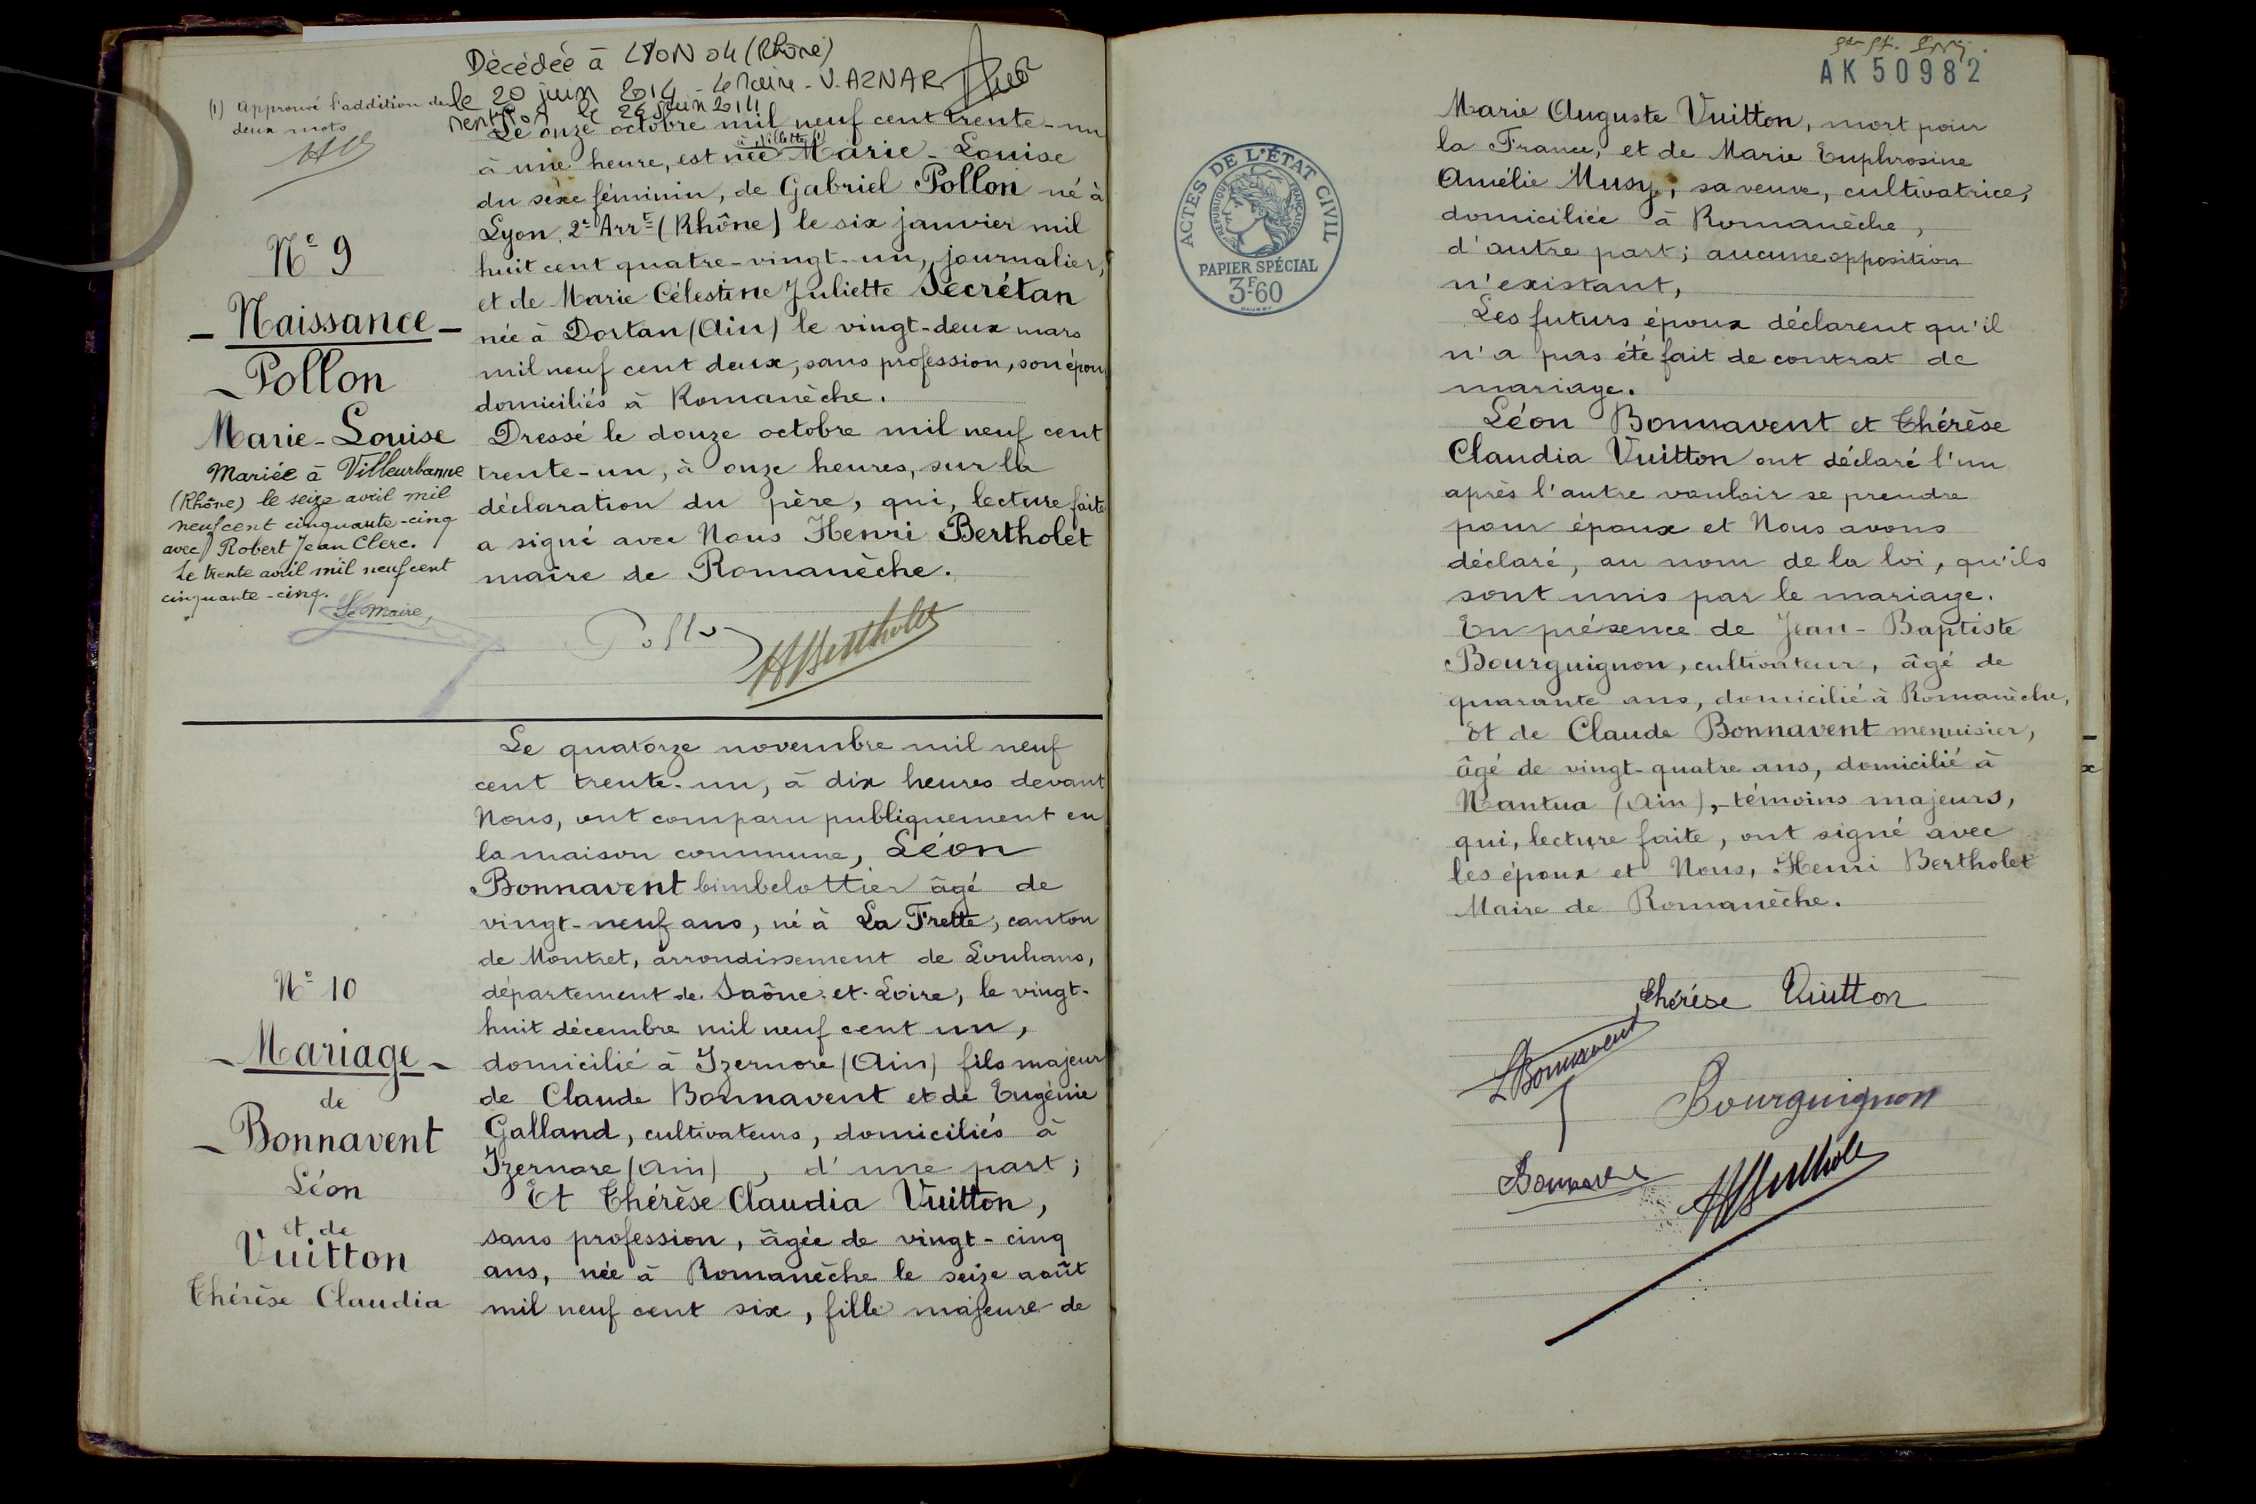 Décédée à LYON 04 (Rhône)
le 20 juin 2014 - le Maire - V. AZNAR
mention le 26 juin 2014
(1) Approuvé l'addition de
deux mots
Le onze octobre mil neuf cent trente-un
à Villette (1)
à une heure, est née Marie-Louise
du sexe féminin, de Gabriel Pollon né à
Lyon, 2e Arrt (Rhône) le six janvier mil
huit cent quatre-vingt-un, journalier,
et de Marie Célestine Juliette Secrétan
née à Dortan (Ain) le vingt-deux mars
mil neuf cent deux, sans profession, son épou
domiciliés à Romanèche.
Dressé le douze octobre mil neuf cent
trente-un, à onze heures, sur la
déclaration du père, qui, lecture faite
a signé avec Nous Henri Bertholet
maire de Romanèche.
Pollon
HBertholet
N° 9
- Naissance -
- Pollon
Marie-Louise
Mariée à Villeurbanne
(Rhône) le seize avril mil
neuf cent cinquante-cinq
avec Robert Jean Clerc.
Le trente avril mil neuf cent
cinquante-cinq.
Le Maire,
Le quatorze novembre mil neuf
cent trente-un, à dix heures devant
Nous, ont comparu publiquement en
la maison commune, Léon
Bonnavent bimbelottier âgé de
vingt-neuf ans, né à La Frette, canton
de Montret, arrondissement de Louhans,
département de Saône-et-Loire, le vingt-
huit décembre mil neuf cent un,
domicilié à Izernore (Ain) fils majeur
de Claude Bonnavent et de Eugénie
Galland, cultivateurs, domiciliés à
Izernore (Ain), d'une part;
Et Thérèse Claudia Vuitton,
sans profession, âgée de vingt-cinq
ans, née à Romanèche le seize août
mil neuf cent six, fille majeure de
N° 10
- Mariage -
de
- Bonnavent
Léon
et de
Vuitton
Thérèse Claudia
AK 50982
ACTES DE L'ÉTAT CIVIL
RÉPUBLIQUE FRANÇAISE
PAPIER SPÉCIAL
3F60
Marie Auguste Vuitton, mort pour
la France, et de Marie Euphrosine
Amélie Musy, sa veuve, cultivatrice,
domiciliée à Romanèche,
d'autre part; aucune opposition
n'existant,
Les futurs époux déclarent qu'il
n'a pas été fait de contrat de
mariage.
Léon Bonnavent et Thérèse
Claudia Vuitton ont déclaré l'un
après l'autre vouloir se prendre
pour époux et Nous avons
déclaré, au nom de la loi, qu'ils
sont unis par le mariage.
En présence de Jean-Baptiste
Bourguignon, cultivateur, âgé de
quarante ans, domicilié à Romanèche,
Et de Claude Bonnavent menuisier,
âgé de vingt-quatre ans, domicilié à
Nantua (Ain), témoins majeurs,
qui, lecture faite, ont signé avec
les époux et Nous, Henri Bertholet
Maire de Romanèche.
Thérèse Vuitton
LBonnavent
Bourguignon
Bonnavent
HBerthole